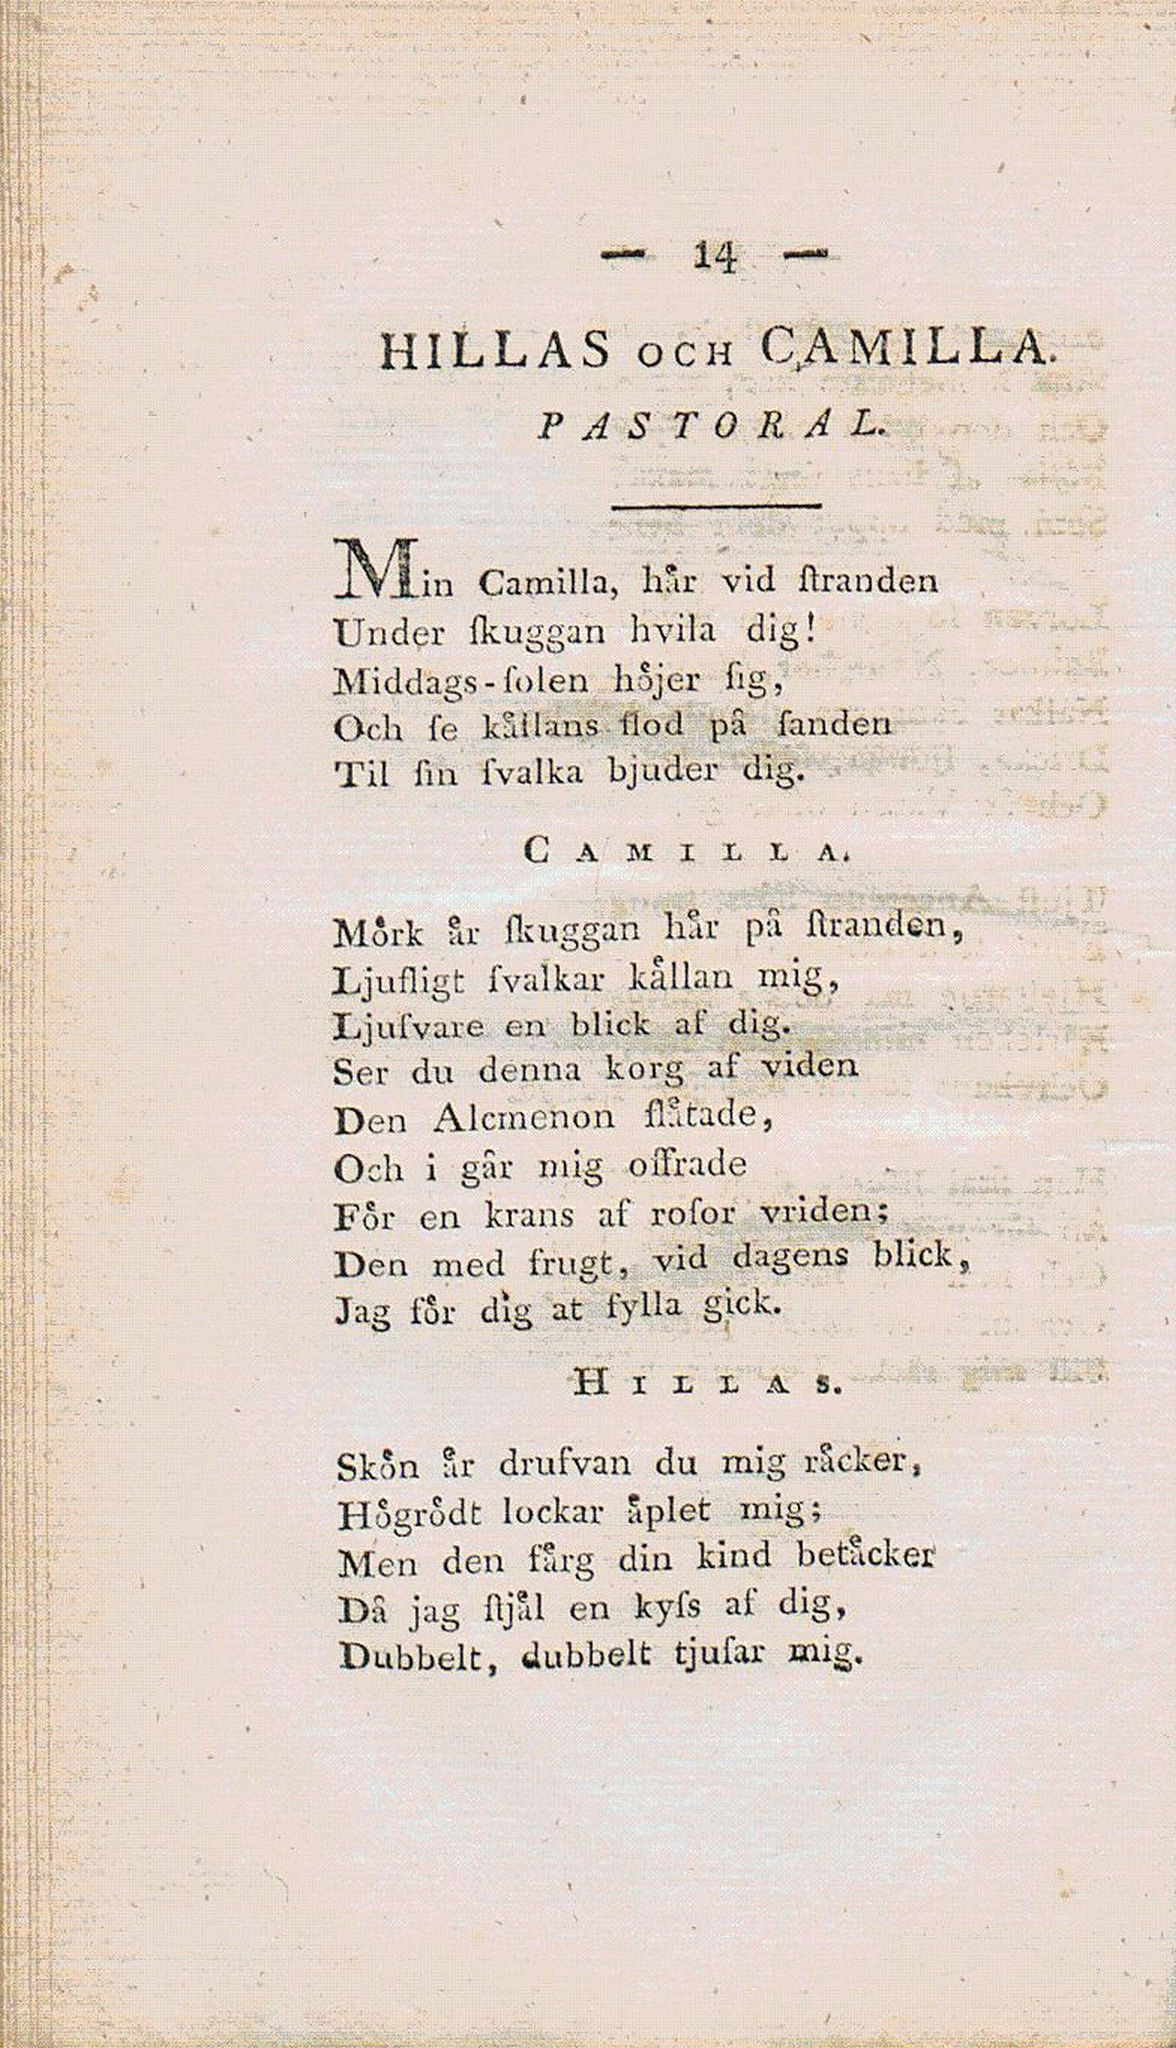 — 14 —
HILLAS OCH CAMILLA.
PASTORAL.
Min Camilla, hår vid ſtranden
Under ſkuggan hvila dig!
Middags-ſolen hôjer ſig,
Och ſe kållans flod på ſanden
Til ſin ſvalka bjuder dig.
CAMILLA.
Môrk år ſkuggan hår på ſtranden,
Ljufligt ſvalkar kållan mig,
Ljufvare en blick af dig.
Ser du denna korg af viden
Den Alcmenon flåtade,
Och i går mig offrade
Fôr en krans af roſor vriden;
Den med frugt, vid dagens blick,
Jag fôr dig at fylla gick.
HILLAS.
Skôn år drufvan du mig råcker,
Hôgrôdt lockar åplet mig;
Men den fårg din kind betåcker
Då jag ſtjål en kyſs af dig,
Dubbelt, dubbelt tjuſar mig.